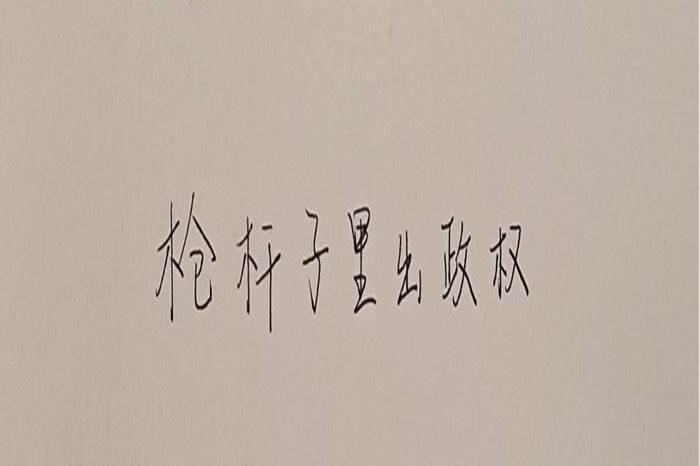 枪杆子里出政权